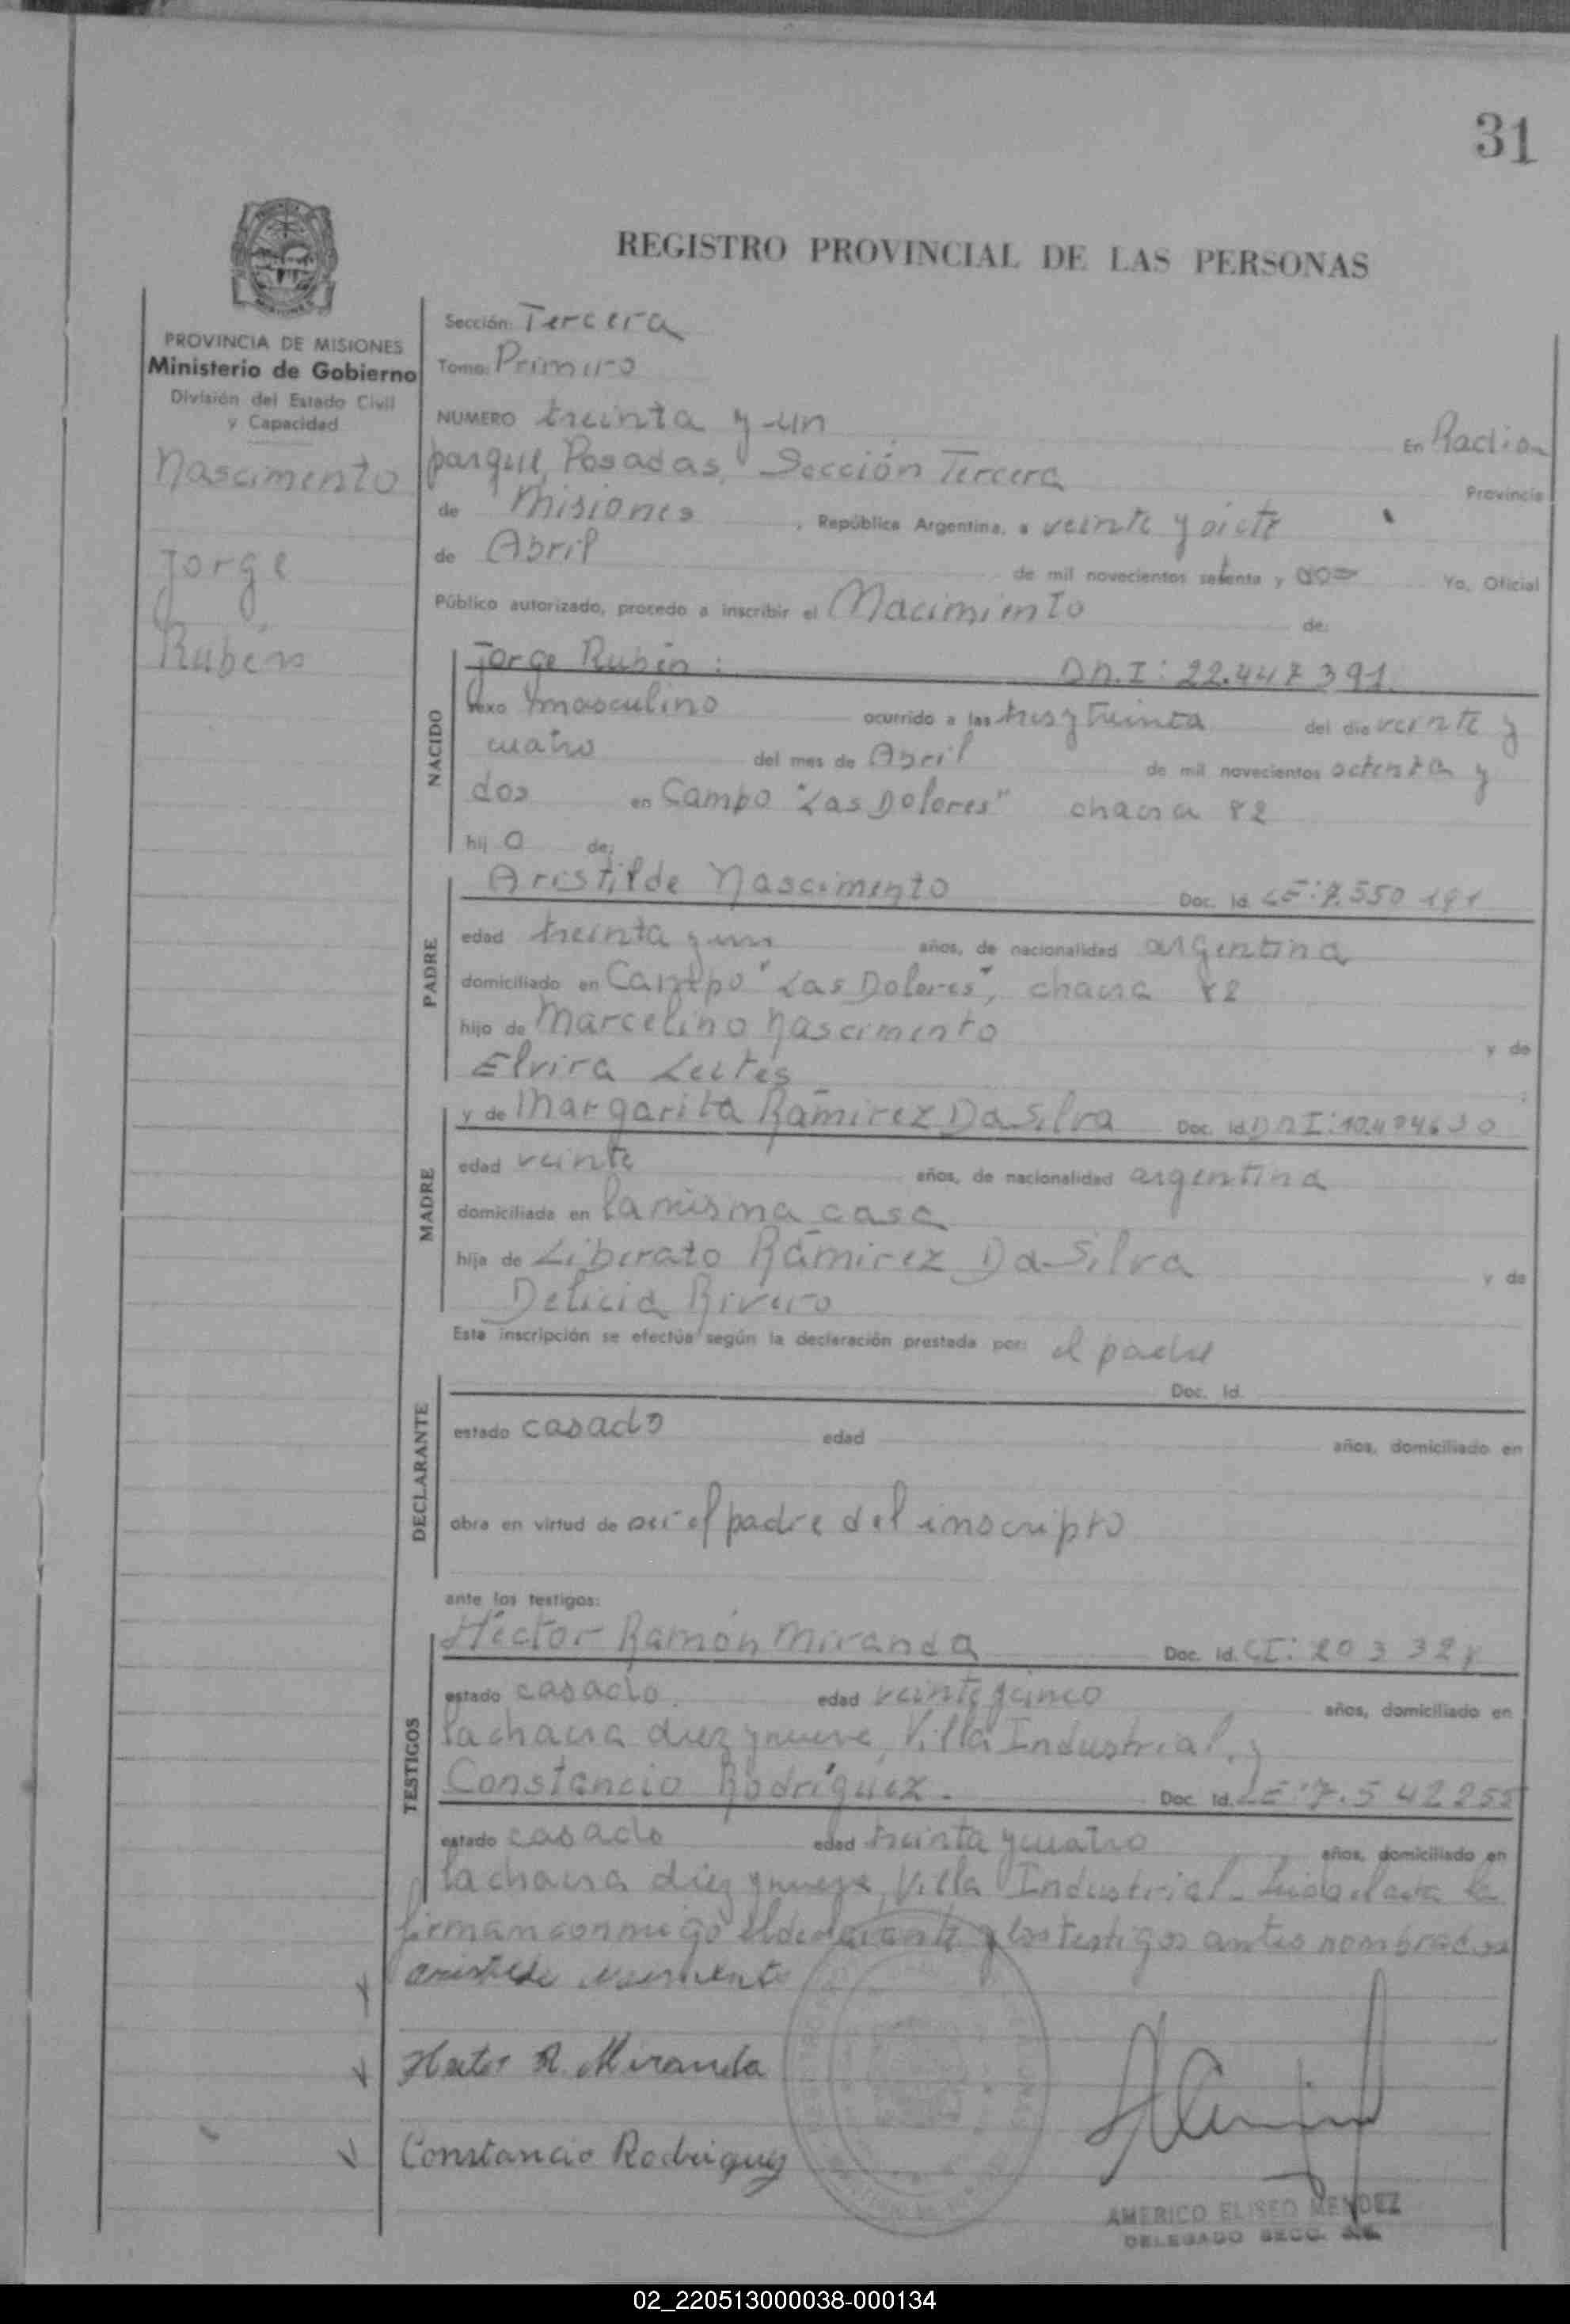 31
REGISTRO PROVINCIAL DE LAS PERSONAS
PROVINCIA DE MISIONES
Ministerio de Gobierno
División del Estado Civil
y Capacidad
Nascimento
Jorge
Rubén
Sección: Tercera
Tomo: Primero
NUMERO treinta y un En Radio
parque, Posadas, Sección Tercera Provincia
de Misiones, República Argentina, a veinte y siete
de Abril de mil novecientos setenta y dos Yo, Oficial
Público autorizado, procedo a inscribir el Nacimiento de:
NACIDO
Jorge Rubén: D.N.I: 22.447 391
sexo masculino ocurrido a las tres y treinta del día veinte y
cuatro del mes de Abril de mil novecientos setenta y
dos en Campo "Las Dolores" chacra 82
hij o de:
PADRE
Aristilde Nascimento Doc. Id. LE: 7.550 191
edad treinta y un años, de nacionalidad argentina
domiciliado en Campo "Las Dolores", chacra 82
hijo de Marcelino Nascimento y de
Elvira Leites
MADRE
y de Margarita Ramirez Da Silva Doc. Id. DNI:
edad veinte años, de nacionalidad argentina
domiciliada en la misma casa
hija de Liberato Ramirez Da Silva y de
Delicia Rivero
Esta inscripción se efectúa según la declaración prestada por: el padre
DECLARANTE
Doc. Id.
estado casado edad años, domiciliado en
obra en virtud de ser el padre del inscripto
ante los testigos:
TESTIGOS
Héctor Ramón Miranda Doc. Id. CI: 203 328
estado casado. edad veinte y cinco años, domiciliado en
la chacra diez y nueve, Villa Industrial, y
Constancio Rodríguez. Doc. Id. LE: 7.542255
estado casado edad treinta y cuatro años, domiciliado en
la chacra diez y nueve, Villa Industrial. Leida el acta la
firman conmigo el declarante y los testigos antes nombrados
Hector R. Miranda
Constancio Rodriguez
AMERICO ELISEO MENDEZ
DELEGADO SECC.
02_220513000038-000134